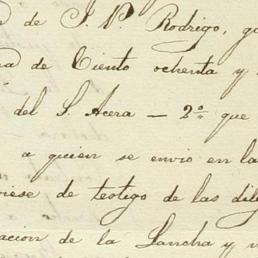 de J. P. Rodrigo, 
de Ciento ochenta y
del S. Acera — 2º que
a quien se envio en la
de testigo de las
de la Lancha y